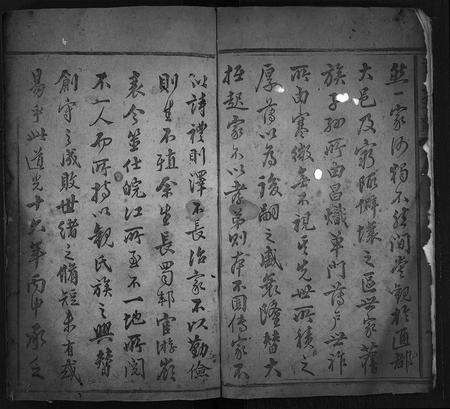 然一家何獨不然間嘗觀於通都
大邑及窮陬僻壤之區世家舊
族子孫所由昌熾車門蓽戶世祚
所由寒微無不視其先世所積之
厚薄以為後嗣之盛衰隆替大
抵起家不以孝弟則本不固傳家不
以詩禮則澤不長治家不以勤儉
則生不殖余生長蜀郡官游嶺
表今筮仕皖江所至不一地所閱
不一人而所持以觀民族之興替
創守之成敗世緒之脩短未有或
易乎此道光十六年丙申承乏